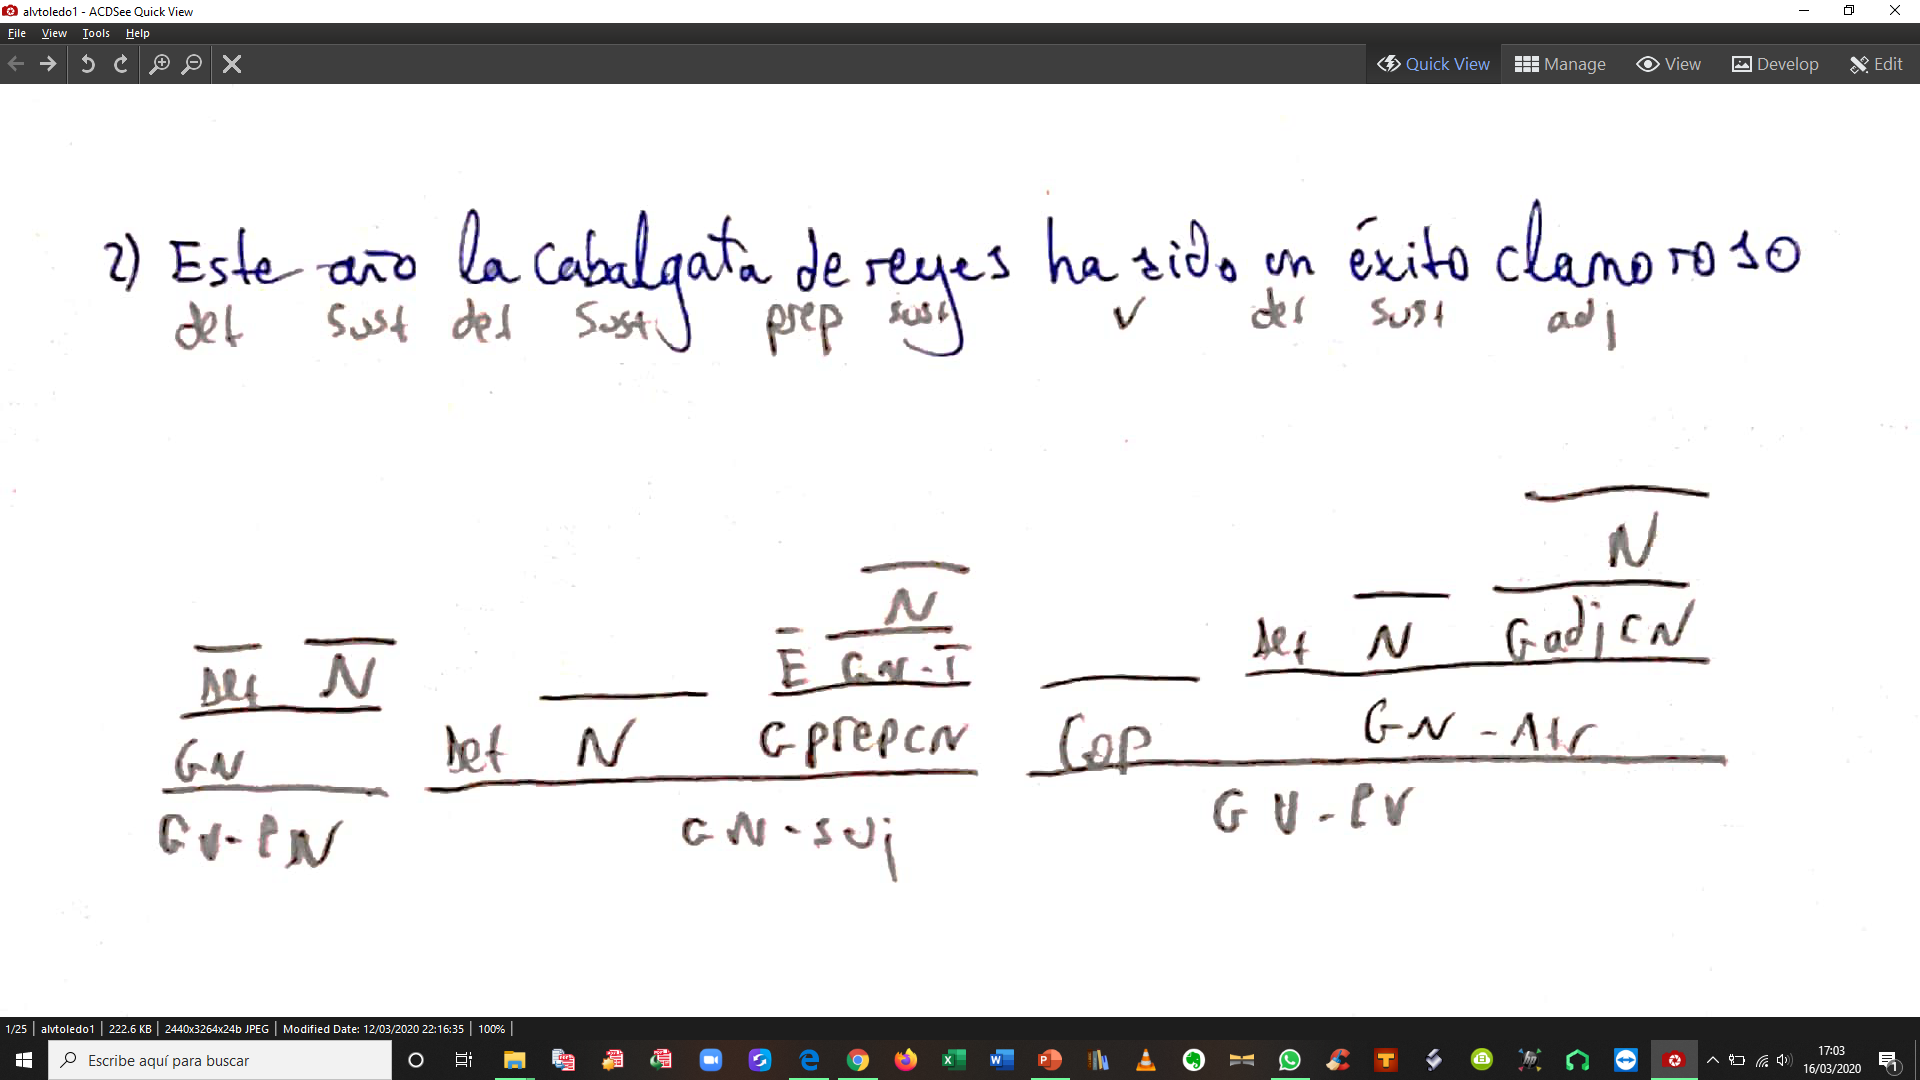 alvtoledo1 - ACDSee Quick View
File View Tools Help
Quick View Manage View Develop Edit
2) Este año la cabalgata de reyes ha sido un éxito clamoroso
det sust det sust prep sust v det sust adj
N
N
Det N GadjCN
E GN-T
Det N
Det N GprepCN Cop GN-Atr
GN
GV-PN GN-Suj GV-PV
1/25 alvtoledo1 222.6 KB 2440x3264x24b JPEG Modified Date: 12/03/2020 22:16:35 100%
Escribe aquí para buscar
17:03
16/03/2020
1